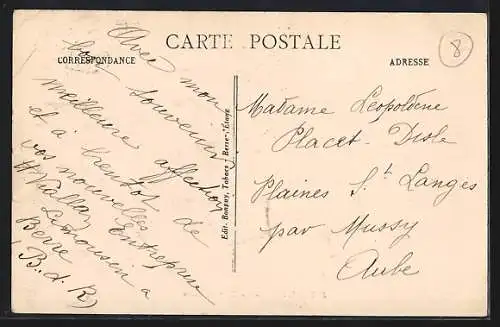 CARTE POSTALE
CORRESPONDANCE
ADRESSE
8
Avec mon
bon souvenir
meilleure affection
et à bientôt de
vos nouvelles
Entreprise
Limousin a
Berre
(B. d. R)
Edit. Bonguy, Tabacs - Berre-l'Etang
Madame Leopoldine
Placet - Disle
Plaines St Langes
par Mussy
Aube